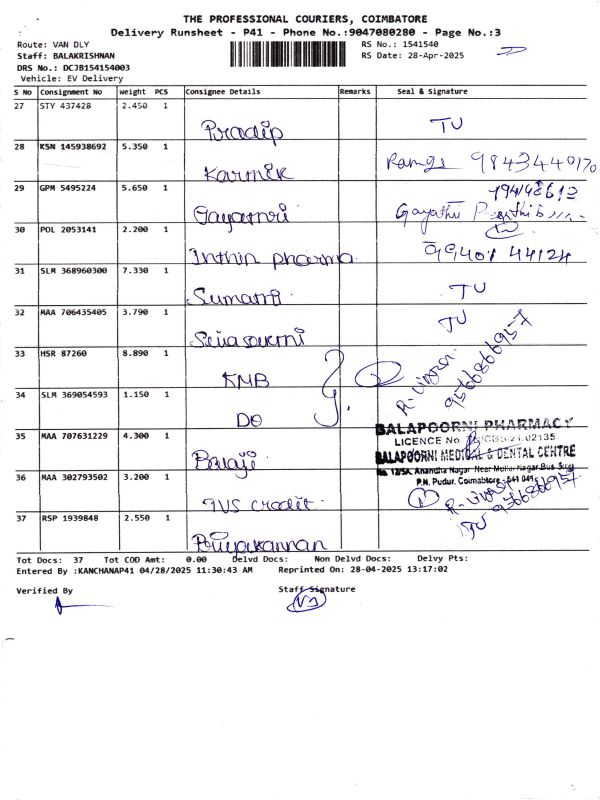 THE PROFESSIONAL COURIERS, COIMBATORE
Delivery Runsheet - P41 - Phone No.:9047080280 - Page No.:3
Route: VAN DLY RS No.: 1541540
Staff: BALAKRISHNAN RS Date: 28-Apr-2025
DRS No.: DCJB154154003
Vehicle: EV Delivery
S No Consignment No Weight PCS Consignee Details Remarks Seal & Signature
27 STY 437428 2.450 1 Pradip TU
28 KSN 145938692 5.350 1 Karmik 9843440170
29 GPM 5495224 5.650 1 Gayathri
30 POL 2053141 2.200 1 Inthin pharma 99401 44124
31 SLM 368960300 7.330 1 Sumathi TU
32 MAA 706435405 3.790 1 TU
33 HSR 87260 8.890 1 KMB 9566866957
34 SLM 369054593 1.150 1 DO
BALAPOORNI PHARMACY
LICENCE No.
35 MAA 707631229 4.300 1 Balaji
BALAPOORNI MEDICAL & DENTAL CENTRE
No. 12/5A, Anandha Nagar Near Mullai Nagar Bus Stop
P.N. Pudur, Coimbatore - 641 041
36 MAA 302793502 3.200 1 TVS credit 9566866957
37 RSP 1939848 2.550 1 Priyakannan TU
Tot Docs: 37 Tot COD Amt: 0.00 Delvd Docs: Non Delvd Docs: Delvy Pts:
Entered By :KANCHANAP41 04/28/2025 11:30:43 AM Reprinted On: 28-04-2025 13:17:02
Verified By Staff Signature